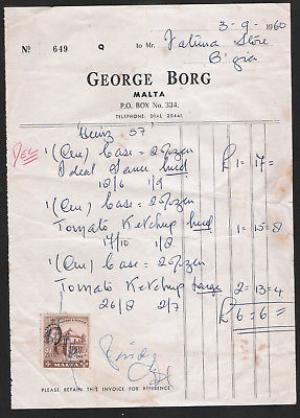 3-9-1960
Nº 649 Q to Mr. Fatima Store
B'gia
GEORGE BORG
MALTA
P.O. BOX No. 334.
TELEPHONE: DIAL 25441
Heinz 57
1 (One) Case = 2 Dozen
Ideal Sauce £1=17=
18/6 1/9
1 (One) Case = 2 Dozen
Tomato Ketchup 1=15=8
17/10 1/8
1 (One) Case = 2 Dozen
Tomato Ketchup Large 2=13=4
26/8 2/7
£6=6=
MALTA
PLEASE RETAIN THIS INVOICE FOR REFERENCE